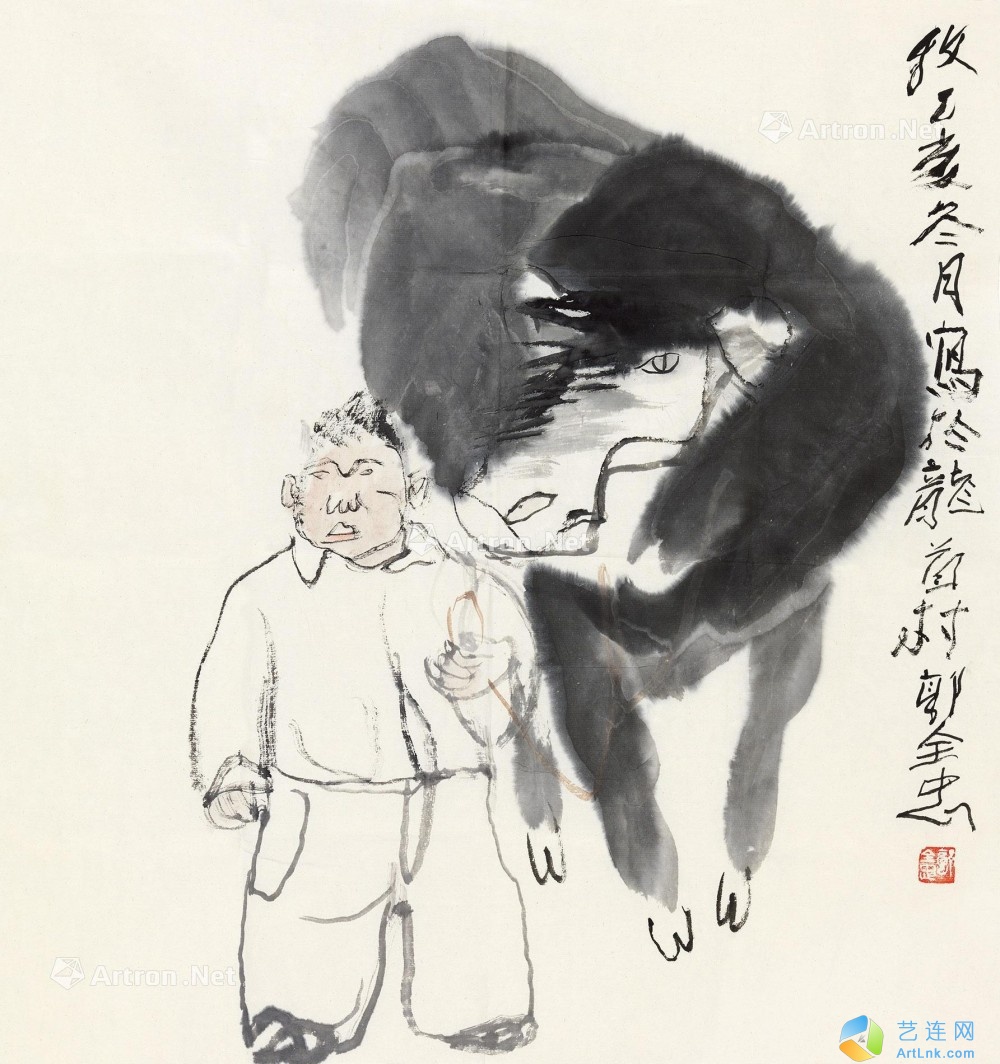 牧乙亥冬月寫於龍首村郭全忠
郭全忠
Artron.Net
Artron.Net
Artron.Net
艺连网
ArtLnk.com